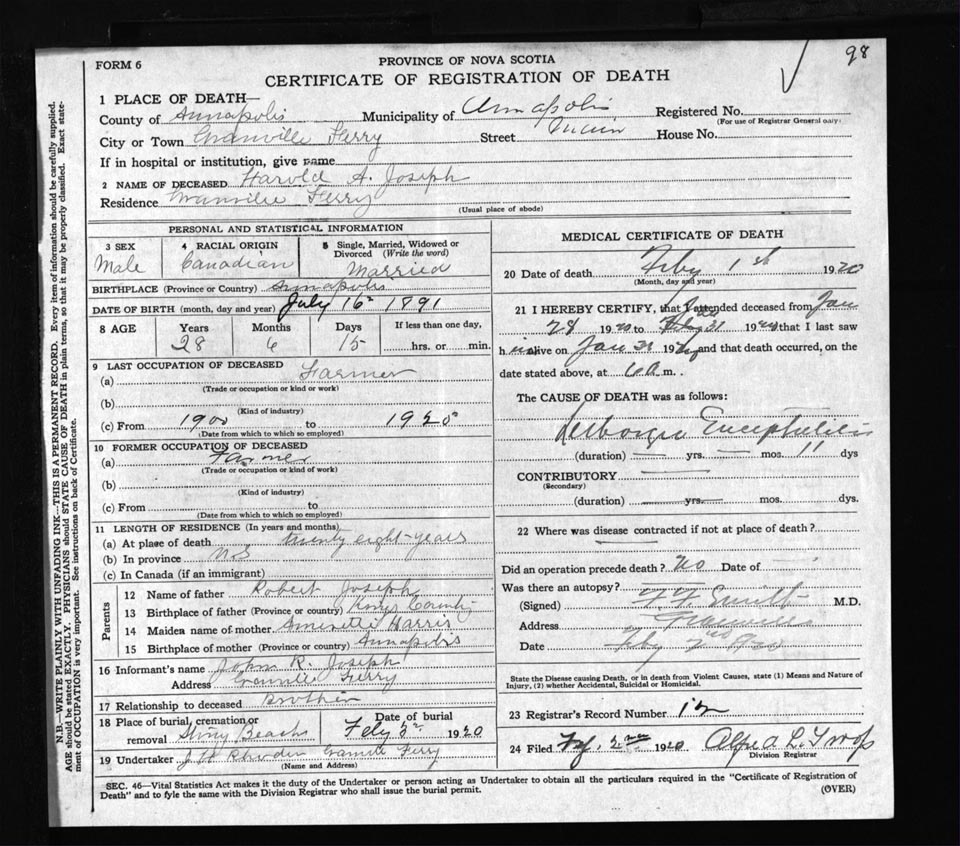 98
FORM 6
PROVINCE OF NOVA SCOTIA
CERTIFICATE OF REGISTRATION OF DEATH
1 PLACE OF DEATH—
County of Annapolis Municipality of Annapolis Registered No.
(For use of Registrar General only)
City or Town Granville Ferry Street Main House No.
If in hospital or institution, give name
2 NAME OF DECEASED Harold A. Joseph
Residence Granville Ferry
(Usual place of abode)
PERSONAL AND STATISTICAL INFORMATION
3 SEX 4 RACIAL ORIGIN 5 Single, Married, Widowed or Divorced (Write the word)
Male Canadian Married
BIRTHPLACE (Province or Country) Annapolis
DATE OF BIRTH (month, day and year) July 16 1891
8 AGE Years Months Days If less than one day,
28 6 15 hrs. or min.
9 LAST OCCUPATION OF DECEASED
(a) Farmer
(Trade or occupation or kind or work)
(b)
(Kind of industry)
(c) From 1900 to 1920
(Date from which to which so employed)
10 FORMER OCCUPATION OF DECEASED
(a) Farmer
(Trade or occupation or kind of work)
(b)
(Kind of industry)
(c) From to
(Date from which to which so employed)
11 LENGTH OF RESIDENCE (In years and months)
(a) At place of death twenty eight-years
(b) In province N S
(c) In Canada (if an immigrant)
Parents
12 Name of father Robert Joseph
13 Birthplace of father (Province or country) Kings County
14 Maiden name of mother Harris
15 Birthplace of mother (Province or country) Annapolis
16 Informant's name John R. Joseph
Address Granville Ferry
17 Relationship to deceased Brother
18 Place of burial, cremation or removal Stony Beach Date of burial Feby 3 1920
19 Undertaker Granville Ferry
(Name and Address)
MEDICAL CERTIFICATE OF DEATH
20 Date of death Feby 1st 1920
(Month, day and year)
21 I HEREBY CERTIFY, that I attended deceased from Jan
28 19 to 19 that I last saw
h alive on Jan 31 19 and that death occurred, on the
date stated above, at 6 a m.
The CAUSE OF DEATH was as follows:
Encephalitis
(duration) yrs. mos. 11 dys
CONTRIBUTORY
(Secondary)
(duration) yrs. mos. dys.
22 Where was disease contracted if not at place of death?
Did an operation precede death? No Date of
Was there an autopsy?
(Signed) F F Smith M.D.
Address Granville
Date Feby 2nd 1920
State the Disease causing Death, or in death from Violent Causes, state (1) Means and Nature of
Injury, (2) whether Accidental, Suicidal or Homicidal.
23 Registrar's Record Number 12
24 Filed Feb. 2nd 1920 Alfred L. Troop
Division Registrar
SEC. 46—Vital Statistics Act makes it the duty of the Undertaker or person acting as Undertaker to obtain all the particulars required in the "Certificate of Registration of
Death" and to fyle the same with the Division Registrar who shall issue the burial permit. (OVER)
N.B.—WRITE PLAINLY WITH UNFADING INK—THIS IS A PERMANENT RECORD. Every item of information should be carefully supplied.
AGE should be stated EXACTLY. PHYSICIANS should STATE CAUSE OF DEATH in plain terms, so that it may be properly classified. Exact state-
ment of OCCUPATION is very important. See instructions on back of Certificate.